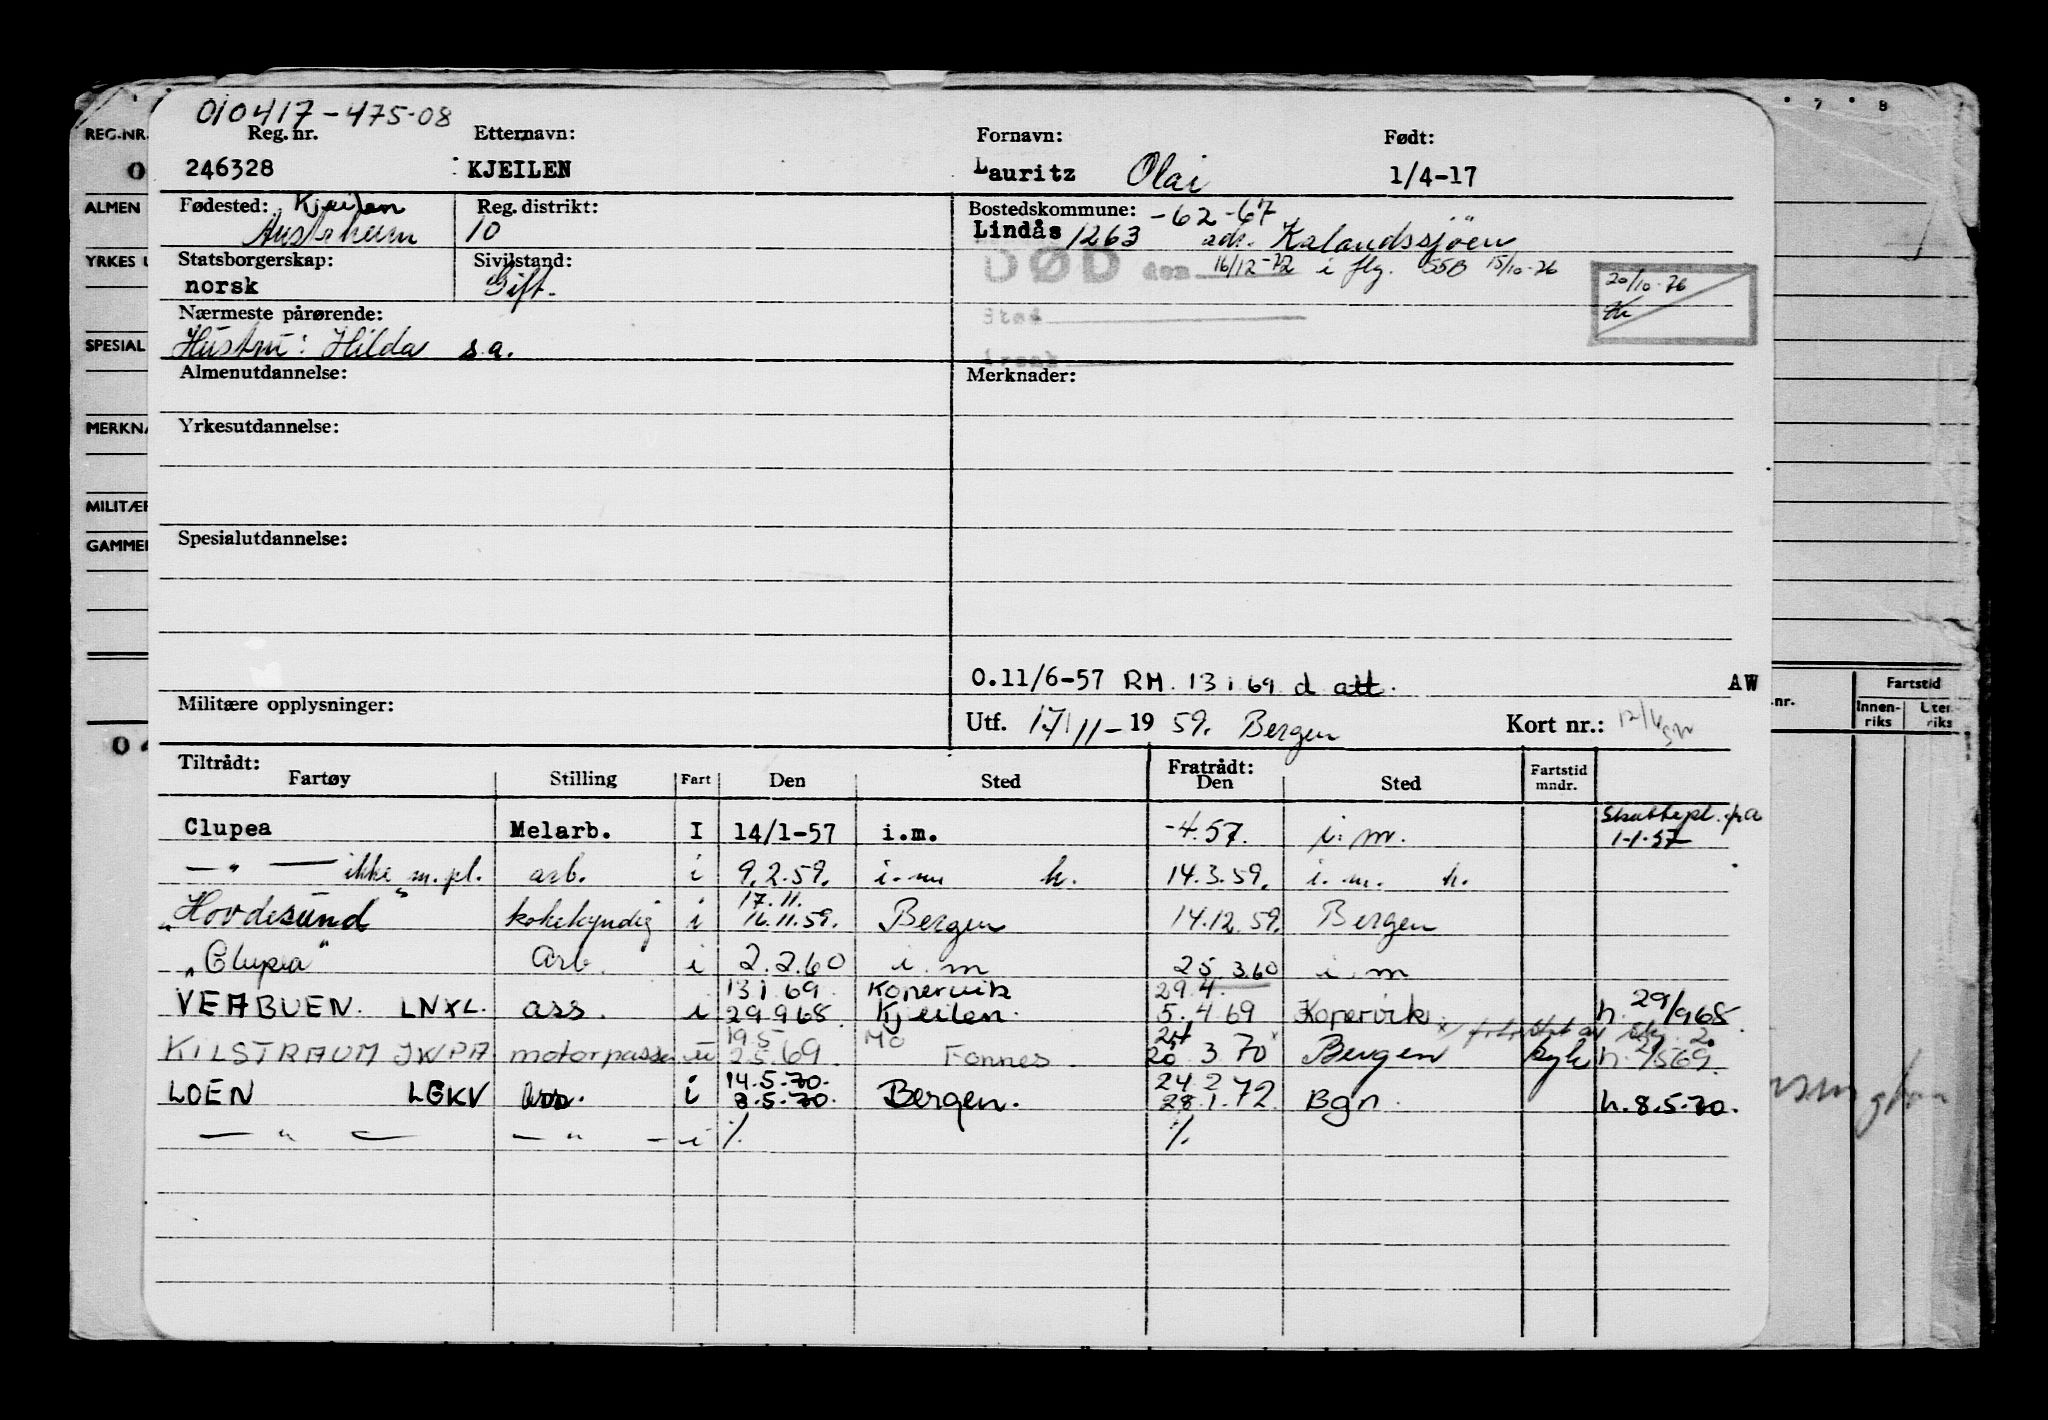 010417-475-08
REG.NR. Reg. nr. Etternavn: Fornavn: Født: 7 8
0 246328 KJEILEN Lauritz Olai 1/4-17
ALMEN Fødested: Kjeilen Reg. distrikt: Bostedskommune: -62-67
Austrheim 10 Lindås 1263 adr. Kalandssjöen
YRKES Statsborgerskap: Sivilstand: DØD den 16/12-72 i flg. SSB 15/10-76
norsk Gift. 20/10-76
Nærmeste pårørende: Sted
SPESIAL Hustru: Hilda s.a. årsak
Almenutdannelse: Merknader:
MERKNA Yrkesutdannelse:
MILITÆR
GAMMEL Spesialutdannelse:
0.11/6-57 RM. 13 1 69 d att. AW
Militære opplysninger: Utf. 17/11- 19 59. Bergen Kort nr.:
nr. Fartstid
Innenriks Utenriks
Tiltrådt: Fratrådt:
Fartøy Stilling Fart Den Sted Den Sted Fartstid mndr.
Clupea Melarb. I 14/1-57 i.m. -4.57. i.m. Skattepl. fra 1-1-57
— " — ikke m.pl. arb. i 9.2.59. i.m h. 14.3.59. i.m. h.
17.11.
"Hovdesund" kokekyndig i 16.11.59. Bergen 14.12.59. Bergen
"Clupea" Arb. i 2.2.60 i.m 25.3.60 i.m
13 1 69 Kopervik 29.4.
VEABUEN. LNXL. ass. i 29.9.68. Kjeilen. 5.4.69 Kopervik h. 29/9 68.
19 5 Mo 24
KILSTRAUM JWPA motorpasser u 2.5.69 Fonnes 20.3.70 x Bergen h. 2/5 69.
14.5.70. 24 2
LOEN LGKV ass. i 8.5.70. Bergen. 28.1.72 Bgn. h.8.5.70.
— " — — " — i % %